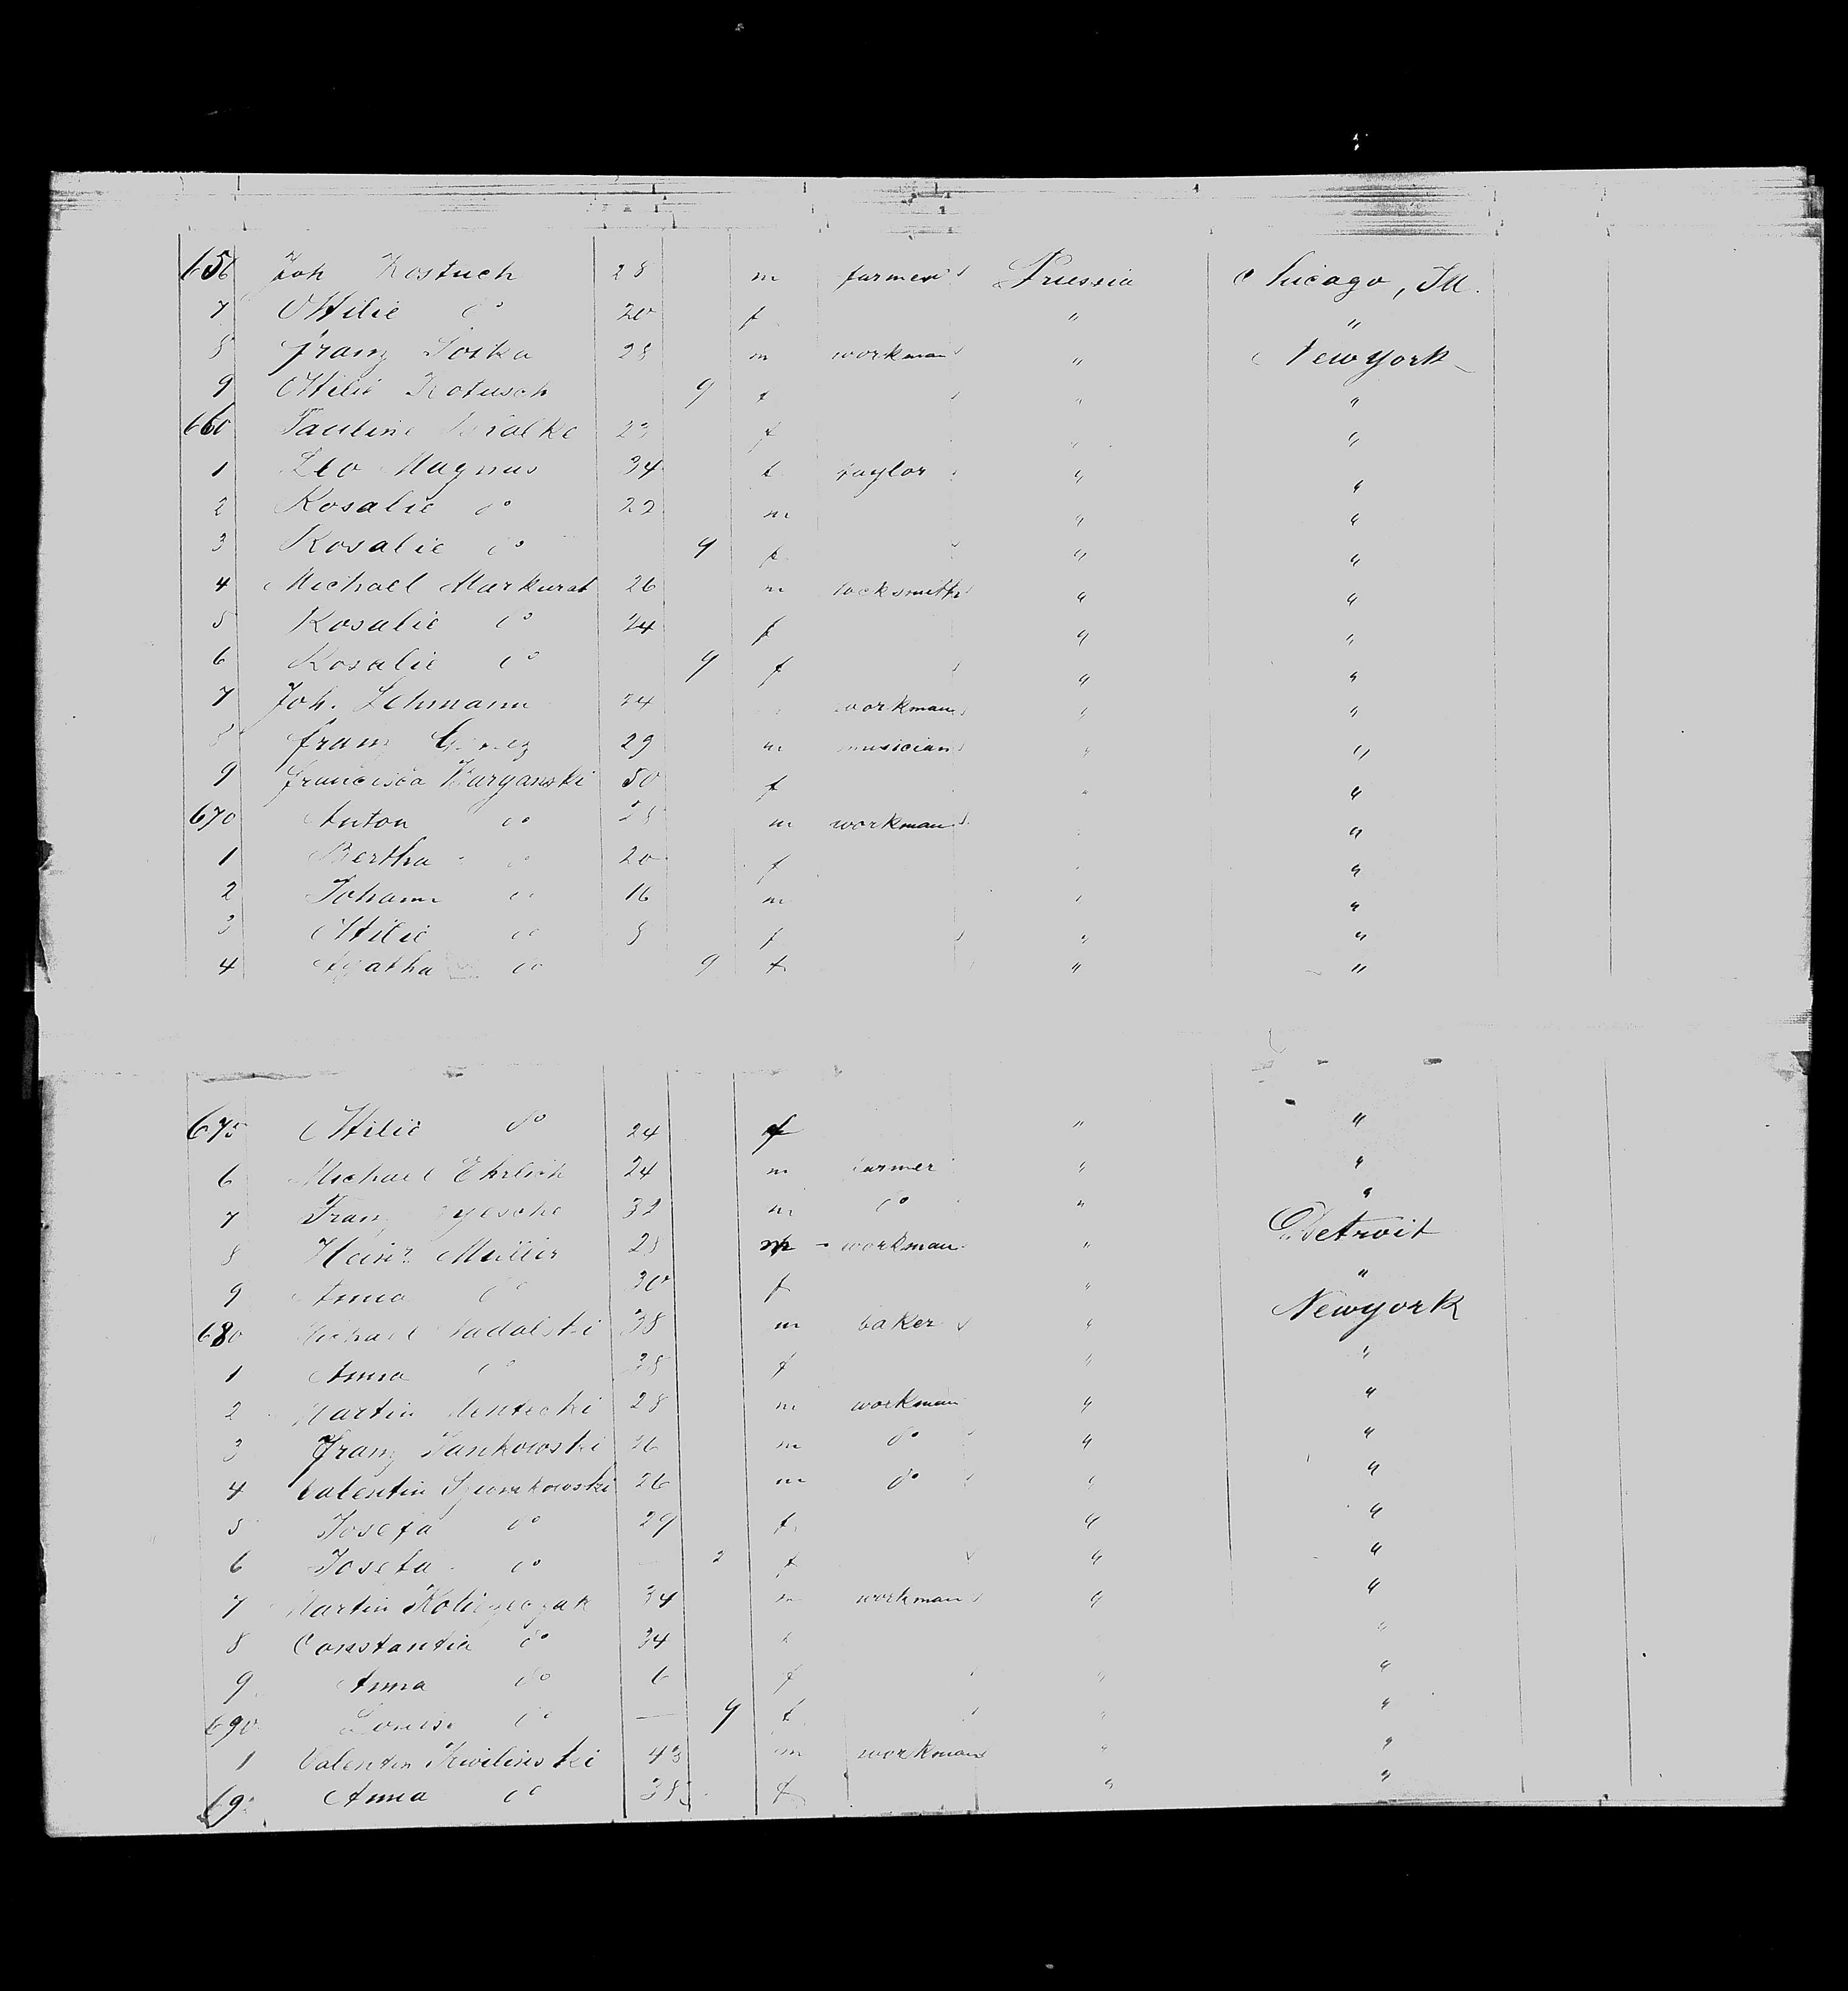 656 Joh Kostuch 28 m farmer Prussia Chicago, Ill.
7 Ottilie do 20 f " "
8 Franz Soika 28 m workman " New york
9 Ottilie Kotusch 9 f " "
660 Pauline 23 f " "
1 Leo Magnus 34 f taylor " "
2 Rosalie do 22 m " "
3 Rosalie do 9 f " "
4 Michael Markurat 26 m locksmith " "
5 Rosalie do 24 f " "
6 Rosalie do 9 f " "
7 Joh. Lehmann 24 workman " "
8 Franz 29 m musician " "
9 Francisca 50 f " "
670 Anton do 28 m workman "
1 Bertha do 20 f "
2 Johann do 16 m " "
3 Ottilie do 8 f " "
4 Agatha do 9 f " "
675 Ottilie do 24 f " "
6 Michael Ehrlich 24 m farmer " "
7 Franz 32 m do " "
8 Heinr Müller 28 m workman " Detroit
9 Anna do 30 f " "
680 Michael Nadolski 38 m baker " Newyork
1 Anna do 38 f " "
2 Martin 28 m workman " "
3 Franz Jankowski 26 m do " "
4 Valentin 26 m do " "
5 Josefa do 29 f " "
6 Josefa do — 2 f " "
7 Martin 34 m workman " "
8 Constantia do 34 f "
9 Anna do 6 f " "
690 Louise do — 9 f " "
1 Valentin Kwilinski 43 m workman " "
692 Anna do 38 f " "